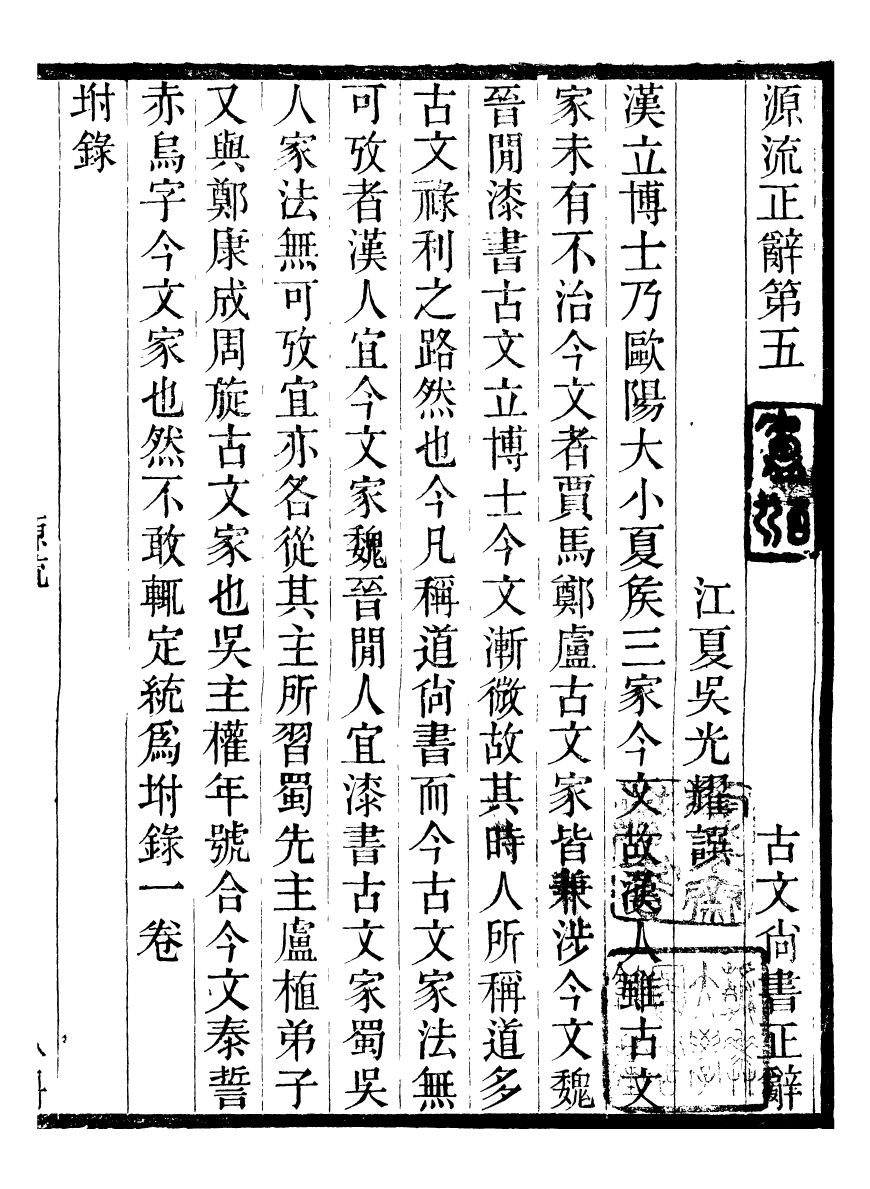 源流正辭第五　古文尙書正辭
江夏吳光耀譔
漢立博士乃歐陽大小夏矦三家今文故漢人雖古文
家未有不治今文者賈馬鄭盧古文家皆兼涉今文魏
晉閒漆書古文立博士今文漸微故其時人所稱道多
古文祿利之路然也今凡稱道尙書而今古文家法無
可攷者漢人宜今文家魏晉閒人宜漆書古文家蜀吳
人家法無可攷宜亦各從其主所習蜀先主盧植弟子
又與鄭康成周旋古文家也吳主權年號合今文泰誓
赤烏字今文家也然不敢輒定統爲坿錄一卷
坿錄